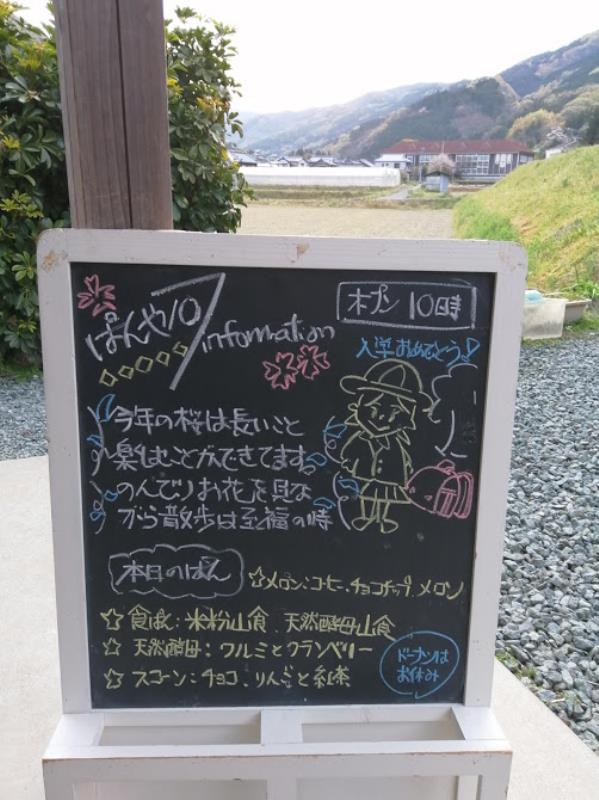 ぱんや10
information
オープン 10時
入学おめでとう♪
今年の桜は長いこと
楽しむことができてます。
のんびりお花を見な
がら散歩は至福の時
本日のぱん
☆メロン：コーヒー、チョコチップ、メロン
☆食ぱん：米粉山食、天然酵母山食
☆天然酵母：クルミとクランベリー
☆スコーン：チョコ、りんごと紅茶
ドーナツは
お休み